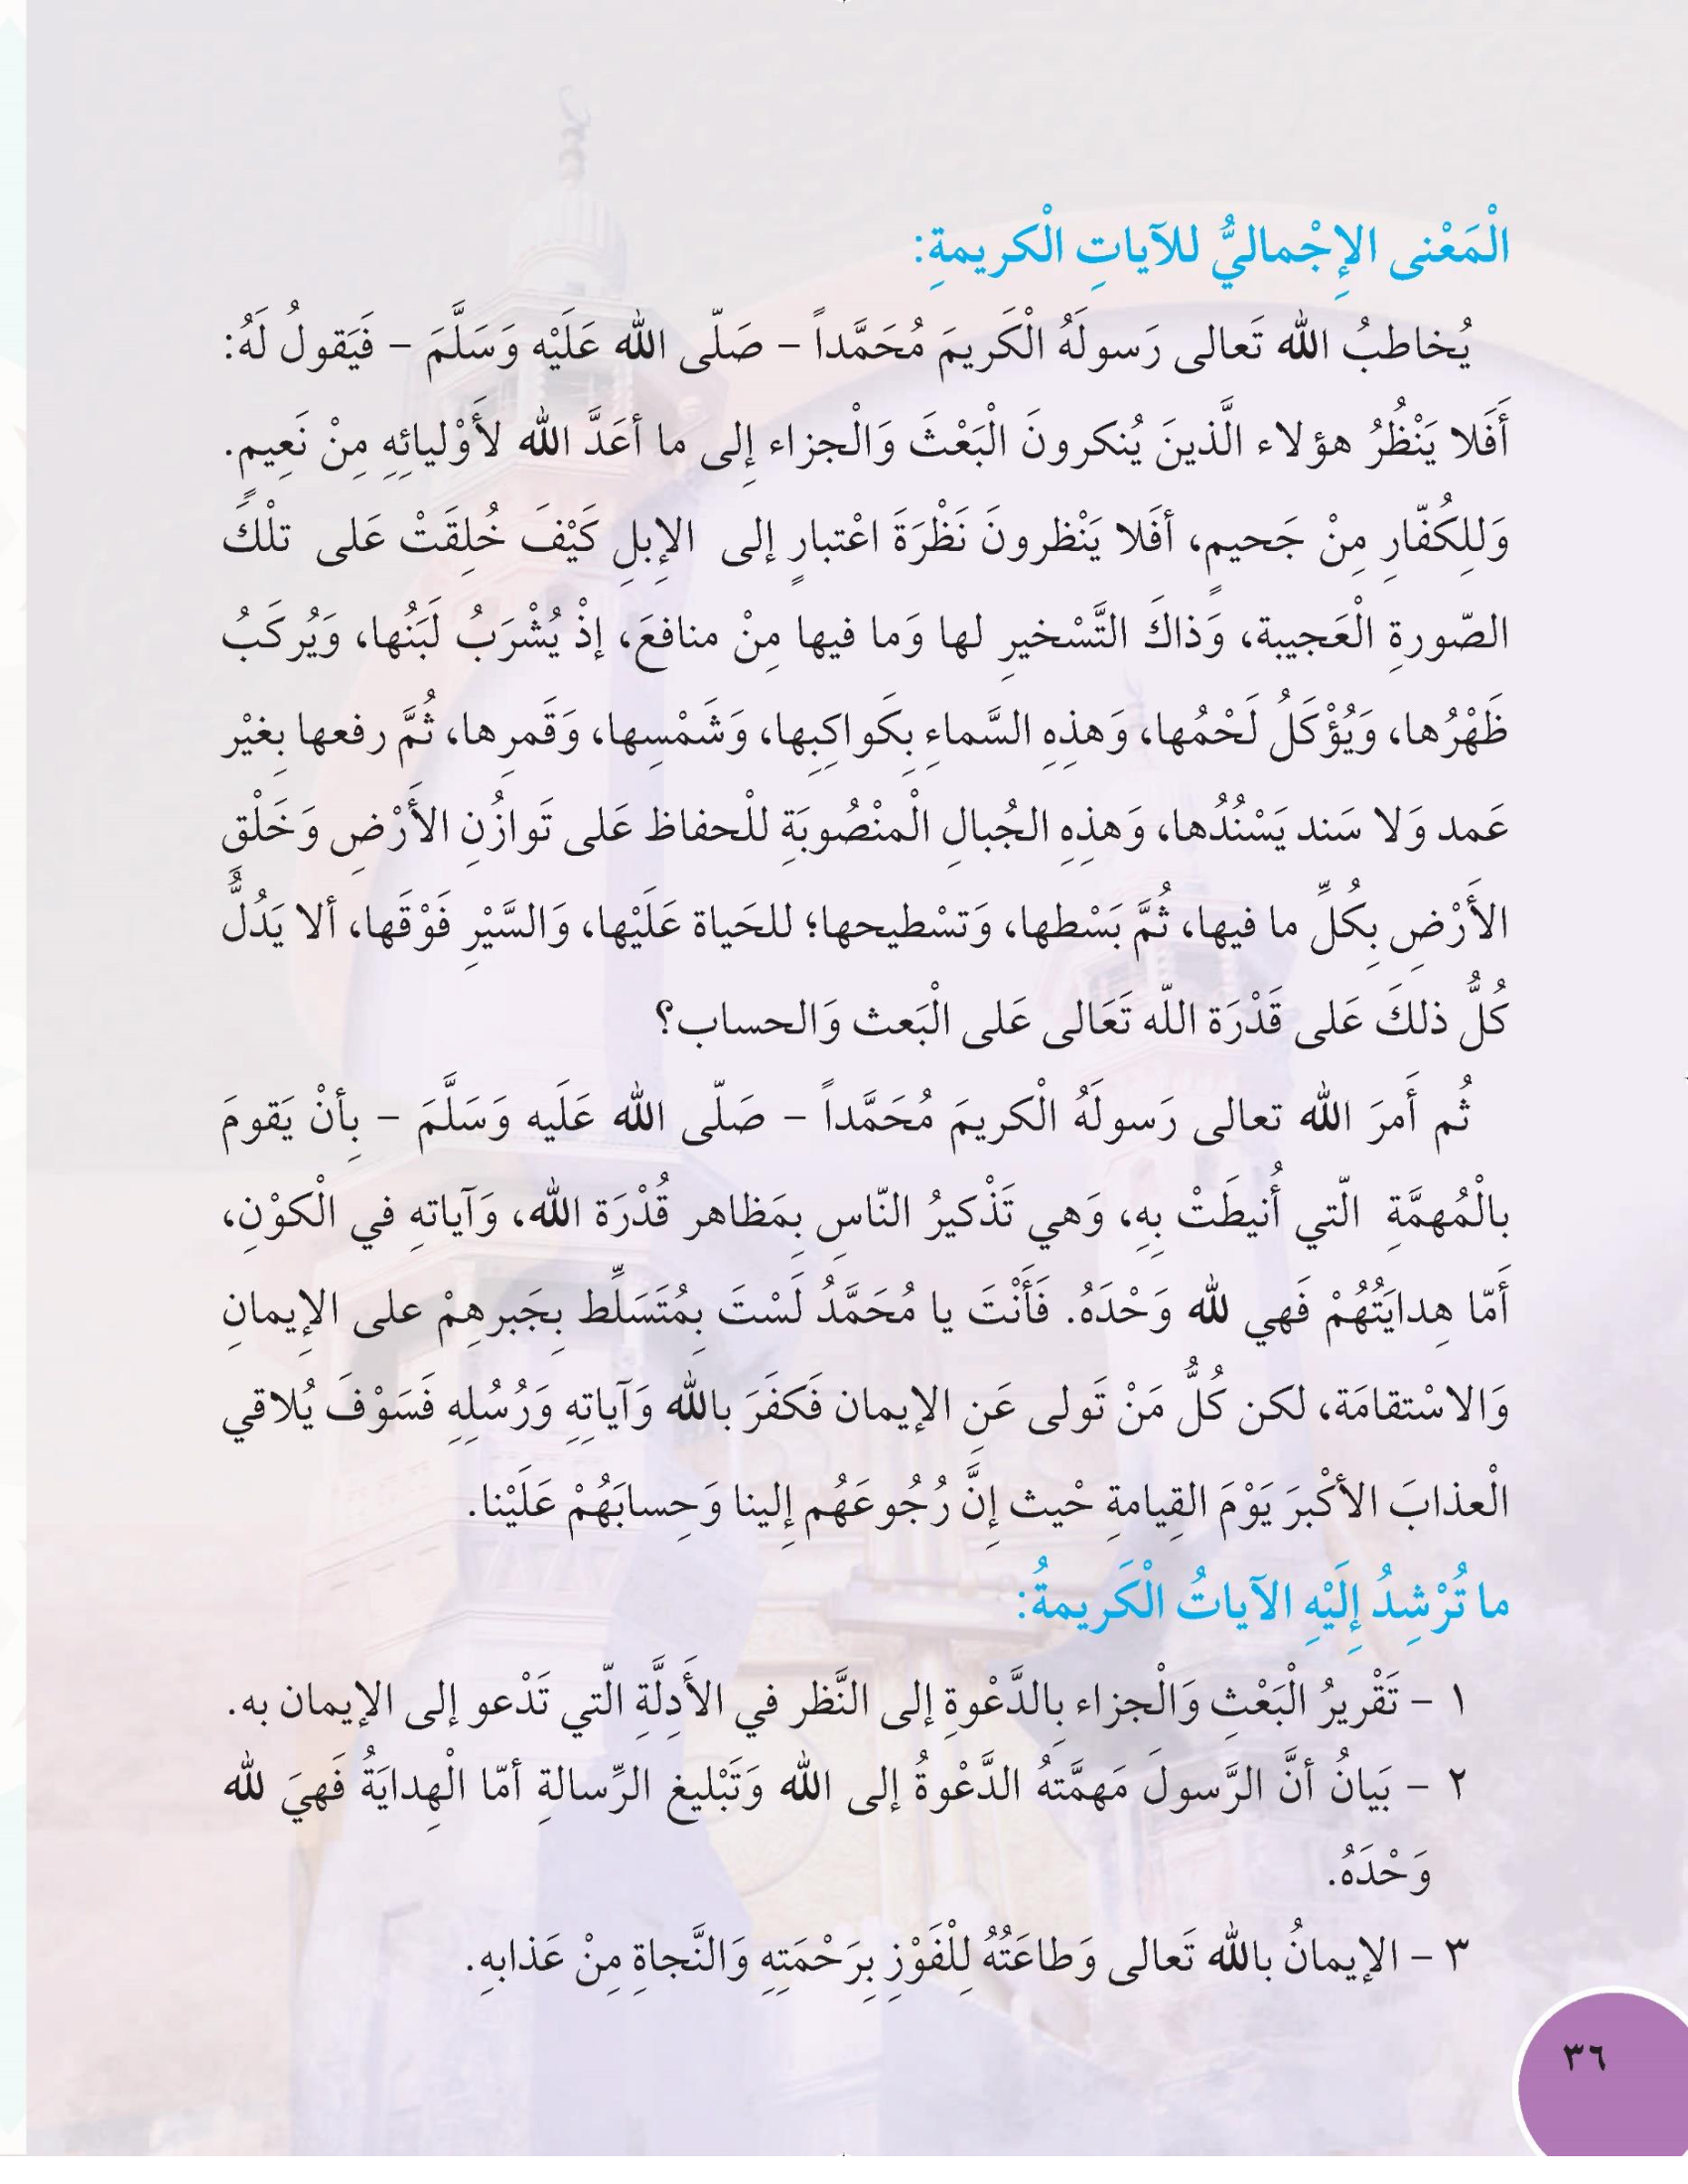 الْمَعْنى الإِجْماليُّ للآياتِ الْكريمةِ:
يُخاطبُ الله تَعالى رَسولَهُ الْكَريمَ مُحَمَّداً – صَلّى الله عَلَيْه وَسَلَّمَ – فَيَقولُ لَهُ:
أَفَلا يَنْظُرُ هؤلاء الَّذينَ يُنكرونَ الْبَعْثَ وَالْجزاء إِلى ما أعَدَّ الله لأَوْليائِهِ مِنْ نَعِيمٍ.
وَللِكُفّارِ مِنْ جَحيمٍ، أفَلا يَنْظرونَ نَظْرَةَ اعْتبارٍ إلى الإِبلِ كَيْفَ خُلِقَتْ عَلى تلْكَ
الصّورةِ الْعَجيبة، وَذاكَ التَّسْخيرِ لها وَما فيها مِنْ منافعَ، إذْ يُشْرَبُ لَبَنُها، وَيُركَبُ
ظَهْرُها، وَيُؤْكَلُ لَحْمُها، وَهذِهِ السَّماءِ بِكَواكِبِها، وَشَمْسِها، وَقَمرِها، ثُمَّ رفعها بِغيْر
عَمد وَلا سَند يَسْنُدُها، وَهذِهِ الجُبالِ الْمنْصُوبَةِ للْحفاظ عَلى تَوازُنِ الأَرْضِ وَخَلْقِ
الأَرْضِ بِكُلِّ ما فيها، ثُمَّ بَسْطها، وَتسْطيحها؛ للحَياة عَلَيْها، وَالسَّيْرِ فَوْقَها، ألا يَدُلُّ
كُلُّ ذلكَ عَلى قَدْرَة اللّه تَعَالى عَلى الْبَعث وَالحساب؟
ثُم أَمرَ الله تعالى رَسولَهُ الْكريمَ مُحَمَّداً – صَلّى الله عَلَيه وَسَلَّمَ – بِأنْ يَقومَ
بالْمُهمَّةِ الّتي أُنيطَتْ بِهِ، وَهي تَذْكيرُ النّاسِ بِمَظاهر قُدْرَة الله، وَآياتهِ في الْكوْنِ،
أَمّا هِدايَتُهُمْ فَهي لله وَحْدَهُ. فَأَنْتَ يا مُحَمَّدُ لَسْتَ بِمُتَسَلِّط بِجَبرهِمْ على الإِيمانِ
وَالاسْتقامَة، لكن كُلُّ مَنْ تَولى عَنِ الإيمان فَكفَرَ بالله وَآياتِهِ وَرُسُلِهِ فَسَوْفَ يُلاقي
الْعذابَ الأكْبرَ يَوْمَ القِيامةِ حْيث إِنَّ رُجُوعَهُم إِلينا وَحِسابَهُمْ عَلَيْنا.
ما تُرْشِدُ إِلَيْهِ الآياتُ الْكَريمةُ:
١ – تَقْريرُ الْبَعْثِ وَالْجزاء بِالدَّعْوةِ إلى النَّظر في الأَدِلَّةِ الّتي تَدْعو إلى الإيمان به.
٢ – بَيانُ أنَّ الرَّسولَ مَهمَّتهُ الدَّعْوةُ إلى الله وَتَبْليغ الرِّسالةِ أمّا الْهِدايَةُ فَهيَ لله
وَحْدَهُ.
٣ – الإيمانُ بالله تَعالى وَطاعَتُهُ لِلْفَوْزِ بِرَحْمَتِهِ وَالنَّجاةِ مِنْ عَذابهِ.
٣٦